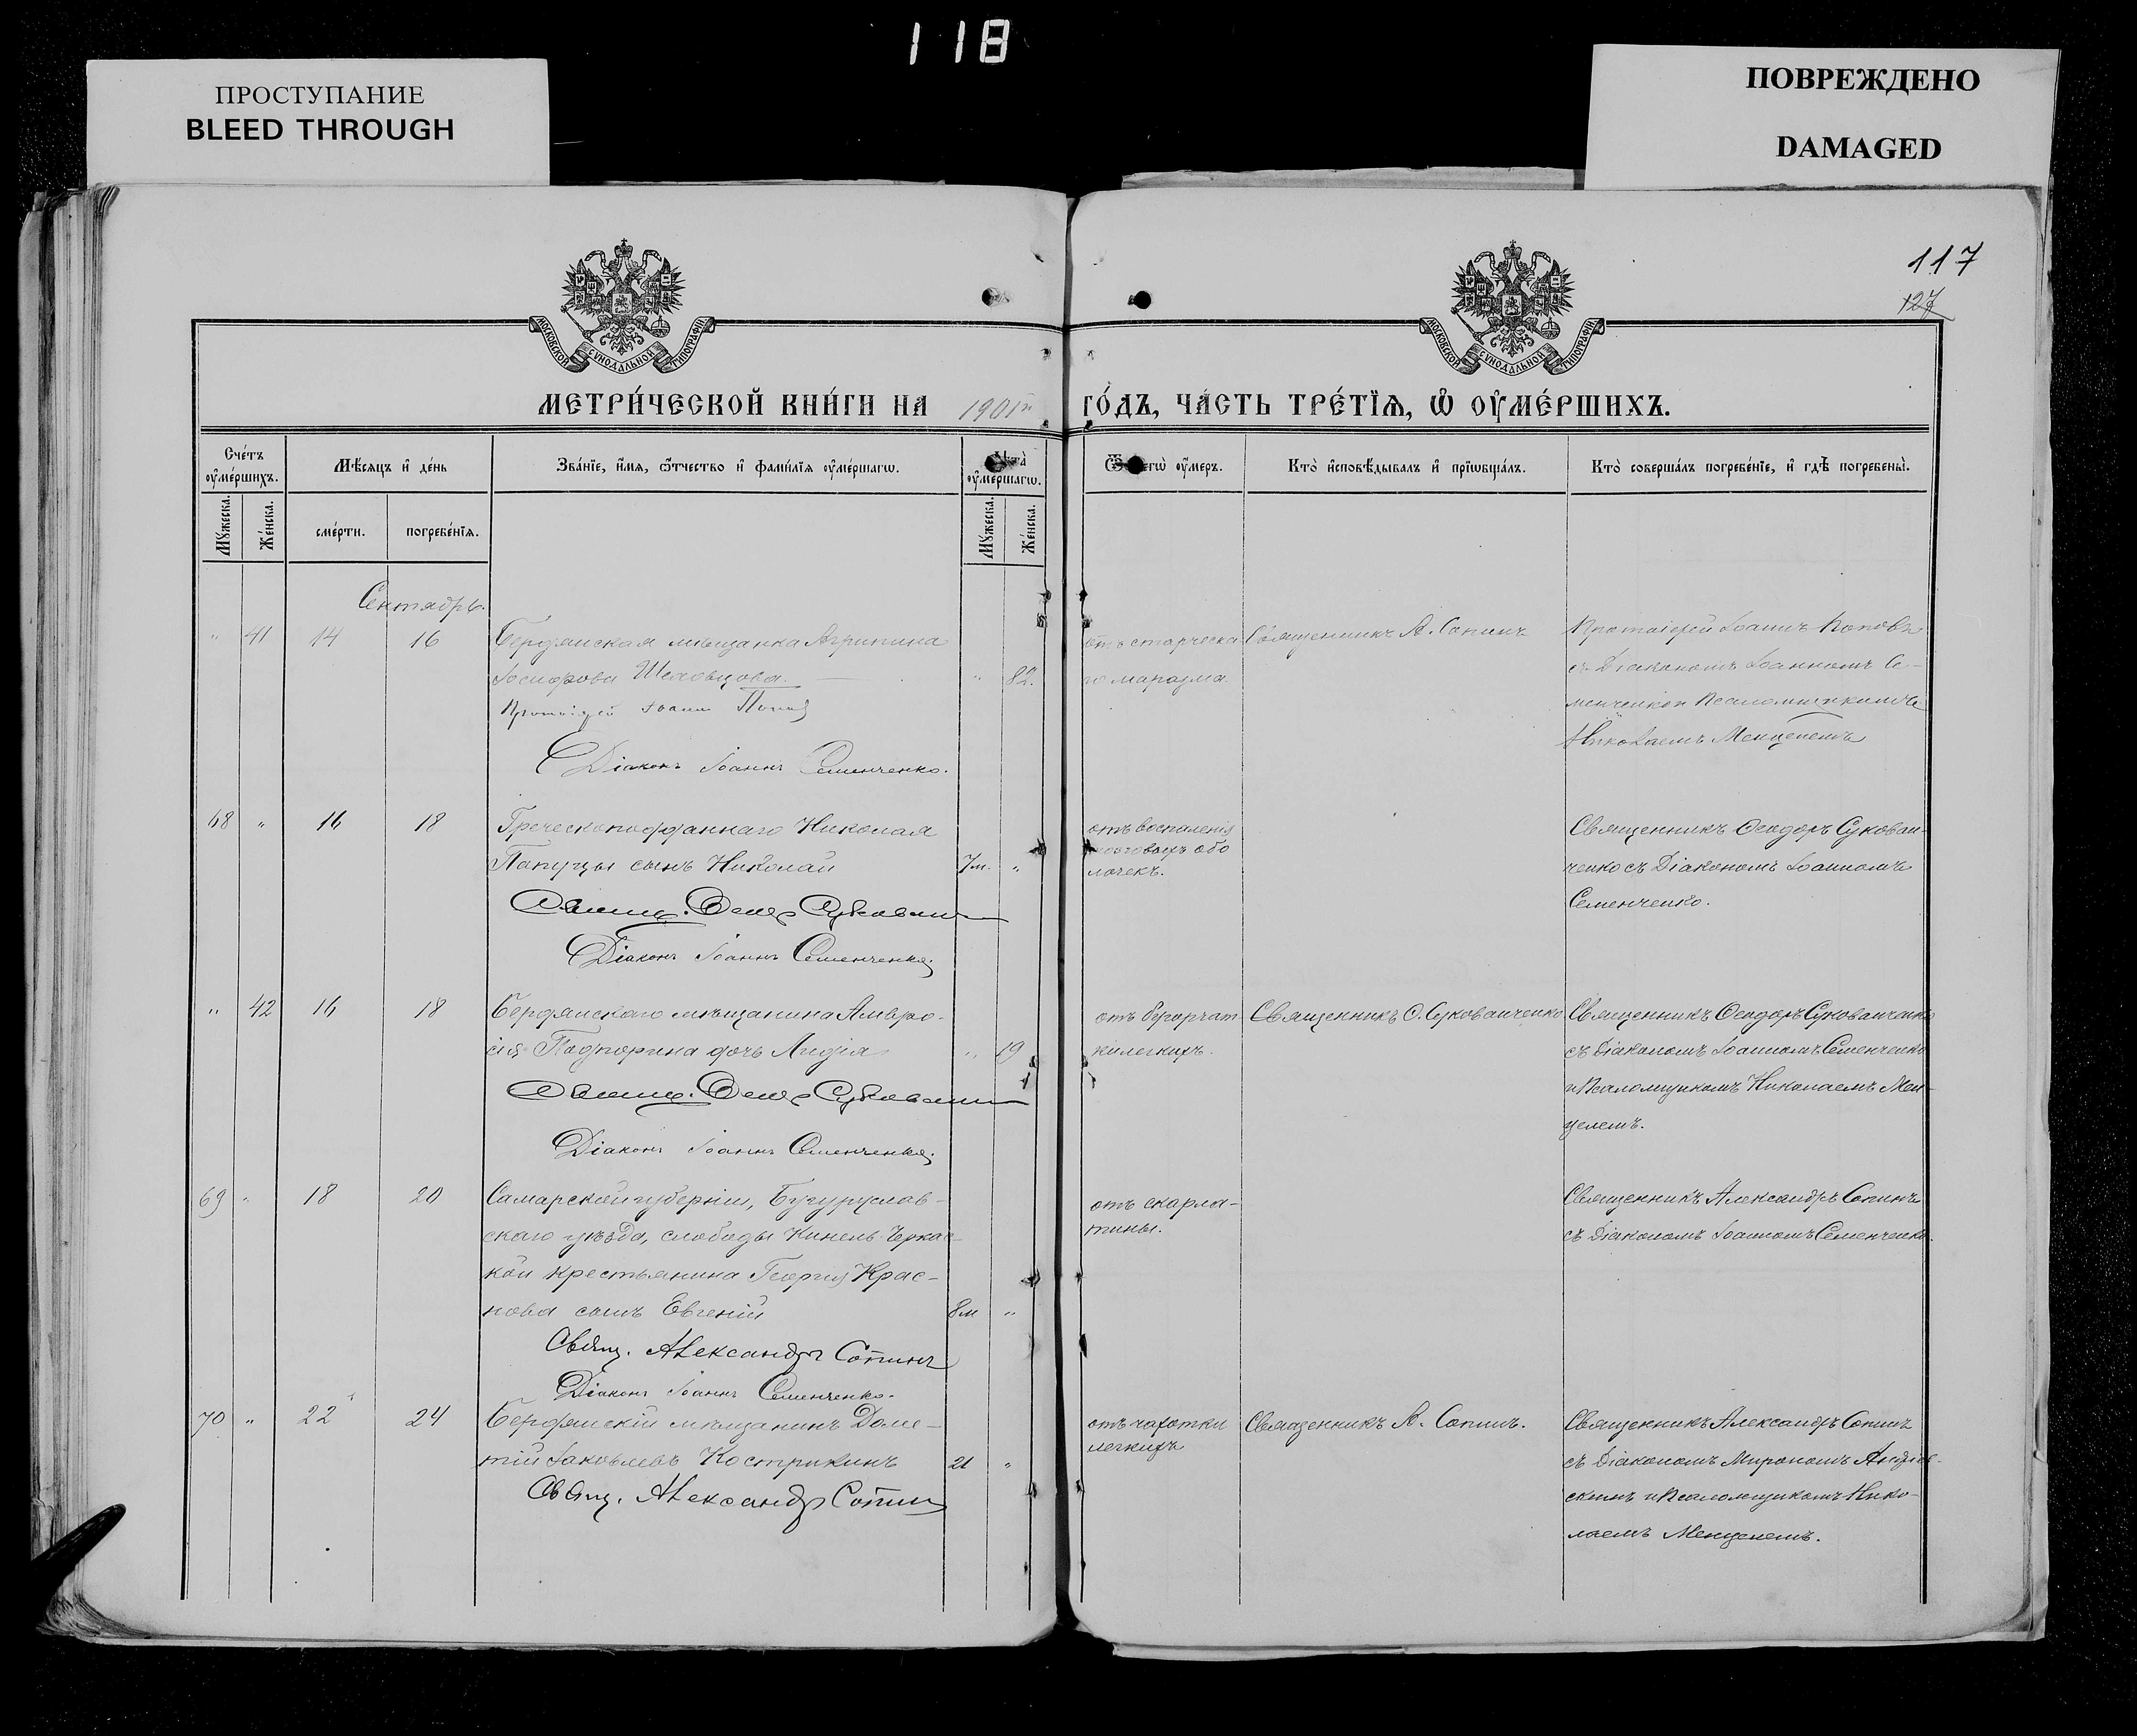 118
ПРОСТУПАНИЕ
BLEED THROUGH
ПОВРЕЖДЕНО
DAMAGED
117
127
МОСКОВСКОЙ СѴНОДАЛЬНОЙ ТИПОГРАФІИ
МОСКОВСКОЙ СѴНОДАЛЬНОЙ ТИПОГРАФІИ
МЕТРИ́ЧЕСКОЙ КНИ́ГИ НА 1901й ГО́ДЪ, ЧА́СТЬ ТРЕ́ТЇѦ, Ѽ ОУ҆МЕ́РШИХЪ.
Сче́тъ оу҆ме́ршихъ.
Мѣ́сѧцъ и҆ де́нь
Зва́нїе, и҆́мѧ, ѻ҆́тчество и҆ фами́лїѧ оу҆ме́ршагѡ.
Лѣ́та оу҆ме́ршагѡ.
Ѿ чегѡ̀ оу҆́меръ.
Кто̀ и҆сповѣ́дывалъ и҆ прїѡбща́лъ.
Кто̀ соверша́лъ погребе́нїе, и҆ гдѣ̀ погребены̀.
Мꙋ́жеска.
Же́нска.
сме́рти.
погребе́нїѧ.
Мꙋ́жеска.
Же́нска.
Сентябрь.
" 41 14 16 Бердянская мѣщанка Агрипина
Іосифова Шеховцова. " 82.
Протоіерей Іоаннъ Поповъ
Діаконъ Іоаннъ Семенченко.
отъ старческа
го маразма.
Священникъ А. Сопинъ
Протоіерей Іоаннъ Поповъ
съ Діакономъ Іоанномъ Се-
менченко и Псаломщикомъ
Николаемъ Менцелемъ
68 " 16 18 Греческоподданнаго Николая
Папуцы сынъ Николай 7м. "
Священ. Феод. Суковани
Діаконъ Іоаннъ Семенченко.
отъ воспаленія
мозговыхъ обо
лочекъ.
Священникъ Феодоръ Сукован-
ченко съ Діакономъ Іоанномъ
Семенченко.
" 42 16 18 Бердянскаго мѣщанина Амвро-
сія Подпорина дочь Лидія " 19
Священ. Феод. Суковани
Діаконъ Іоаннъ Семенченко.
отъ бугорчат
ки легкихъ.
Священникъ Ѳ. Сукованченко
Священникъ Феодоръ Сукованченко
съ Діакономъ Іоанномъ Семенченко
и Псаломщикомъ Николаемъ Мен-
целемъ.
69 " 18 20 Самарской губерніи, Бугуруслав-
скаго уѣзда, слободы Кинель-Черкас-
кой крестьянина Георгія Крас-
нова сынъ Евгеній 8м "
Свящ. Александръ Сопинъ
Діаконъ Іоаннъ Семенченко.
отъ скарла-
тины.
Священникъ Александръ Сопинъ
съ Діакономъ Іоанномъ Семенченко.
70 " 22 24 Бердянскій мѣщанинъ Доме-
тій Іаковлевъ Кострикинъ 21 "
Свящ. Александръ Сопинъ
отъ чахотки
легкихъ
Священникъ А. Сопинъ.
Священникъ Александръ Сопинъ
съ Діакономъ Мирономъ
скимъ и Псаломщикомъ Нико-
лаемъ Менцелемъ.